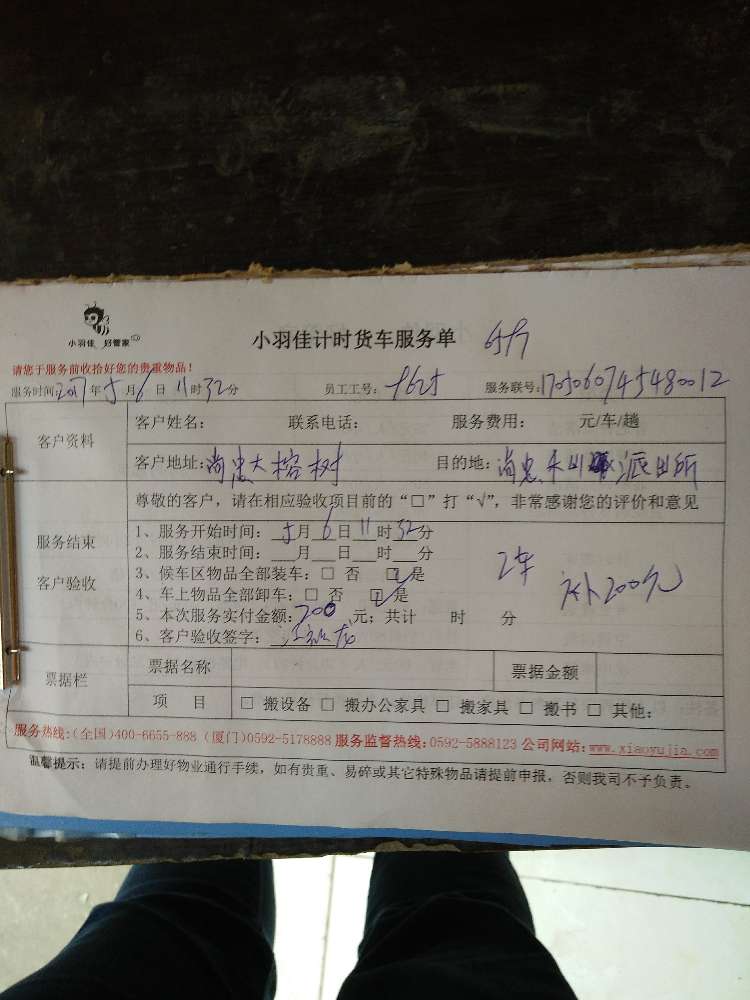 小羽佳 好管家
小羽佳计时货车服务单
请您于服务前收拾好您的贵重物品!
服务时间:2017年5月6日11时32分 员工工号: 服务联号:1705060745480012
客户资料
客户姓名: 联系电话: 服务费用: 元/车/趟
客户地址:尚忠大榕树 目的地:尚忠禾山派出所
服务结束
客户验收
尊敬的客户,请在相应验收项目前的“□”打“√”,非常感谢您的评价和意见
1、服务开始时间:5月6日11时32分
2、服务结束时间:__月__日__时__分
3、候车区物品全部装车:□ 否 ☑是
4、车上物品全部卸车:□ 否 ☑是
2车 补200元
5、本次服务实付金额:200元;共计 时 分
6、客户验收签字:
票据栏
票据名称 票据金额
项 目 □ 搬设备 □ 搬办公家具 □ 搬家具 □ 搬书 □ 其他:
服务热线:(全国)400-6655-888 (厦门)0592-5178888 服务监督热线:0592-5888123 公司网站:www.xiaoyujia.com
温馨提示:请提前办理好物业通行手续,如有贵重、易碎或其它特殊物品请提前申报,否则我司不予负责。